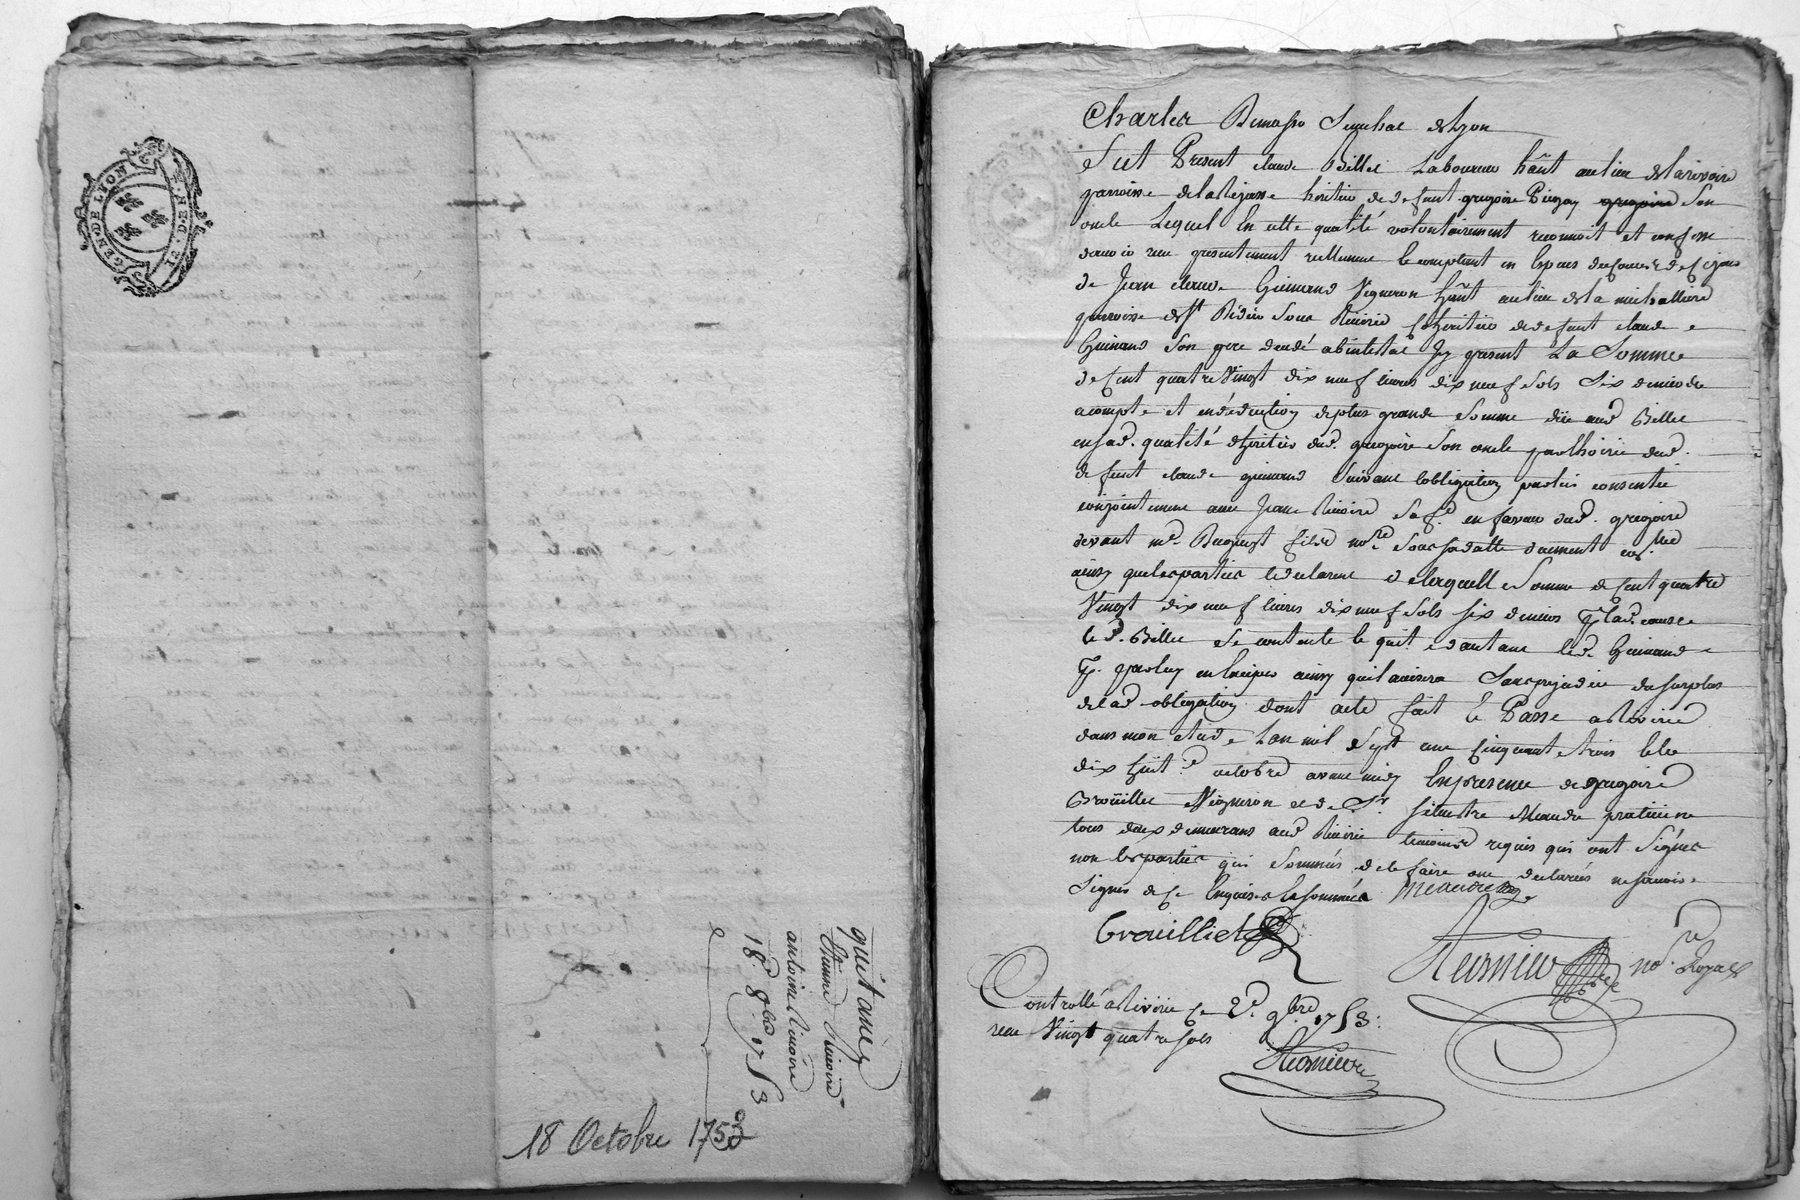 GEN. DE LYON
quitance
Etienne Rivoire
antoine Rivoire
18e 8bre 1753
18 Octobre 1753
Charles senechal de Lyon
fut Present claude Billet Laboureur hãnt au lieu de la rivoire
parroisse de heritier de defunt gregoire son
oncle Lequel En cette quallité volontairement reconnoit et confesse
davoir reçu presentement reellement comptant en Especes de
de Jean claude Guinand Vigneron hãnt au lieu de la
parroisse de St Didier sous Riverie heritier de defunt claude
Guinand son pere decedé abintestat Jcy present La Somme
de Cent quatre Vingt dix neuf livres dix neuf sols six deniers
acompte et en deduction de plus grande somme düe aud Billet
en sad. qualité d'heritier dud. gregoire son oncle par lhoirie dud.
defunt claude guinand suivant lobligation par luy consentie
conjointement avec Jeanne Rivoire sa fe en faveur dud. gregoire
devant me nore sous sa datte duement
ainsy que les parties le declarent de laquelle somme de cent quatre
Vingt dix neuf livres dix neuf sols six deniers lad. cause
led. Billet se contente le quit. dautant led. Guinand
par luy ainsy quil avisera sans prejudice du surplus
de lad obligation dont acte fait et Passé a Riverie
dans mon etude Lan mil sept cent cinquante trois et le
dix huit octobre avant midy En presence de gregoire
Broüillet Vigneron et de Sr silvestre Meaudre praticien
tous deux demeurans aud Riverie temoins requis qui ont signés
non les parties qui sommées de le faire ont declarées ne savoir
signer de ce Enquises et sommées Meaudre
Brouilliet
nore Royal
Controllé a Riverie ce 2e 9bre 1753
reçu Vingt quatre sols